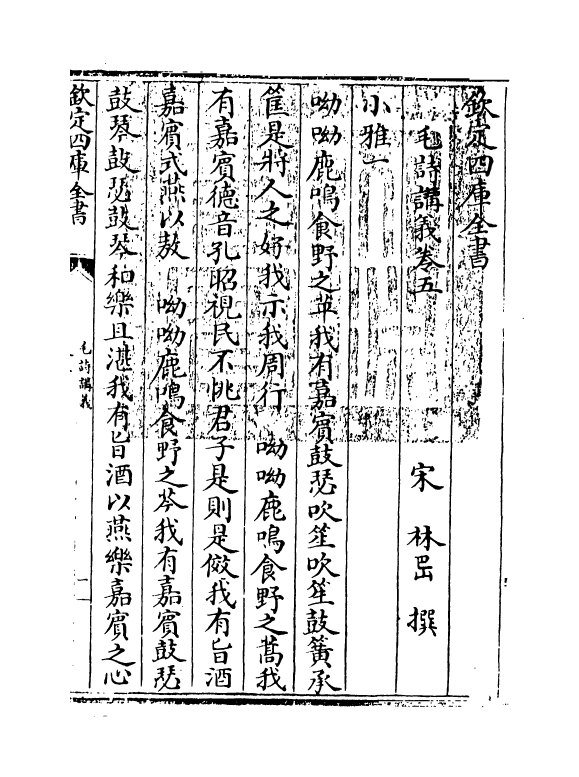 欽定四庫全書
毛詩講義卷五
宋 林岊 撰
小雅一
呦呦鹿鳴食野之苹我有嘉賓鼓瑟吹笙吹笙鼓簧承
筐是將人之好我示我周行 呦呦鹿鳴食野之蒿我
有嘉賓德音孔昭視民不恌君子是則是傚我有旨酒
嘉賓式燕以敖 呦呦鹿鳴食野之芩我有嘉賓鼓瑟
鼓琴鼓瑟鼓琴和樂且湛我有旨酒以燕樂嘉賓之心
欽定四庫全書
毛詩講義
一